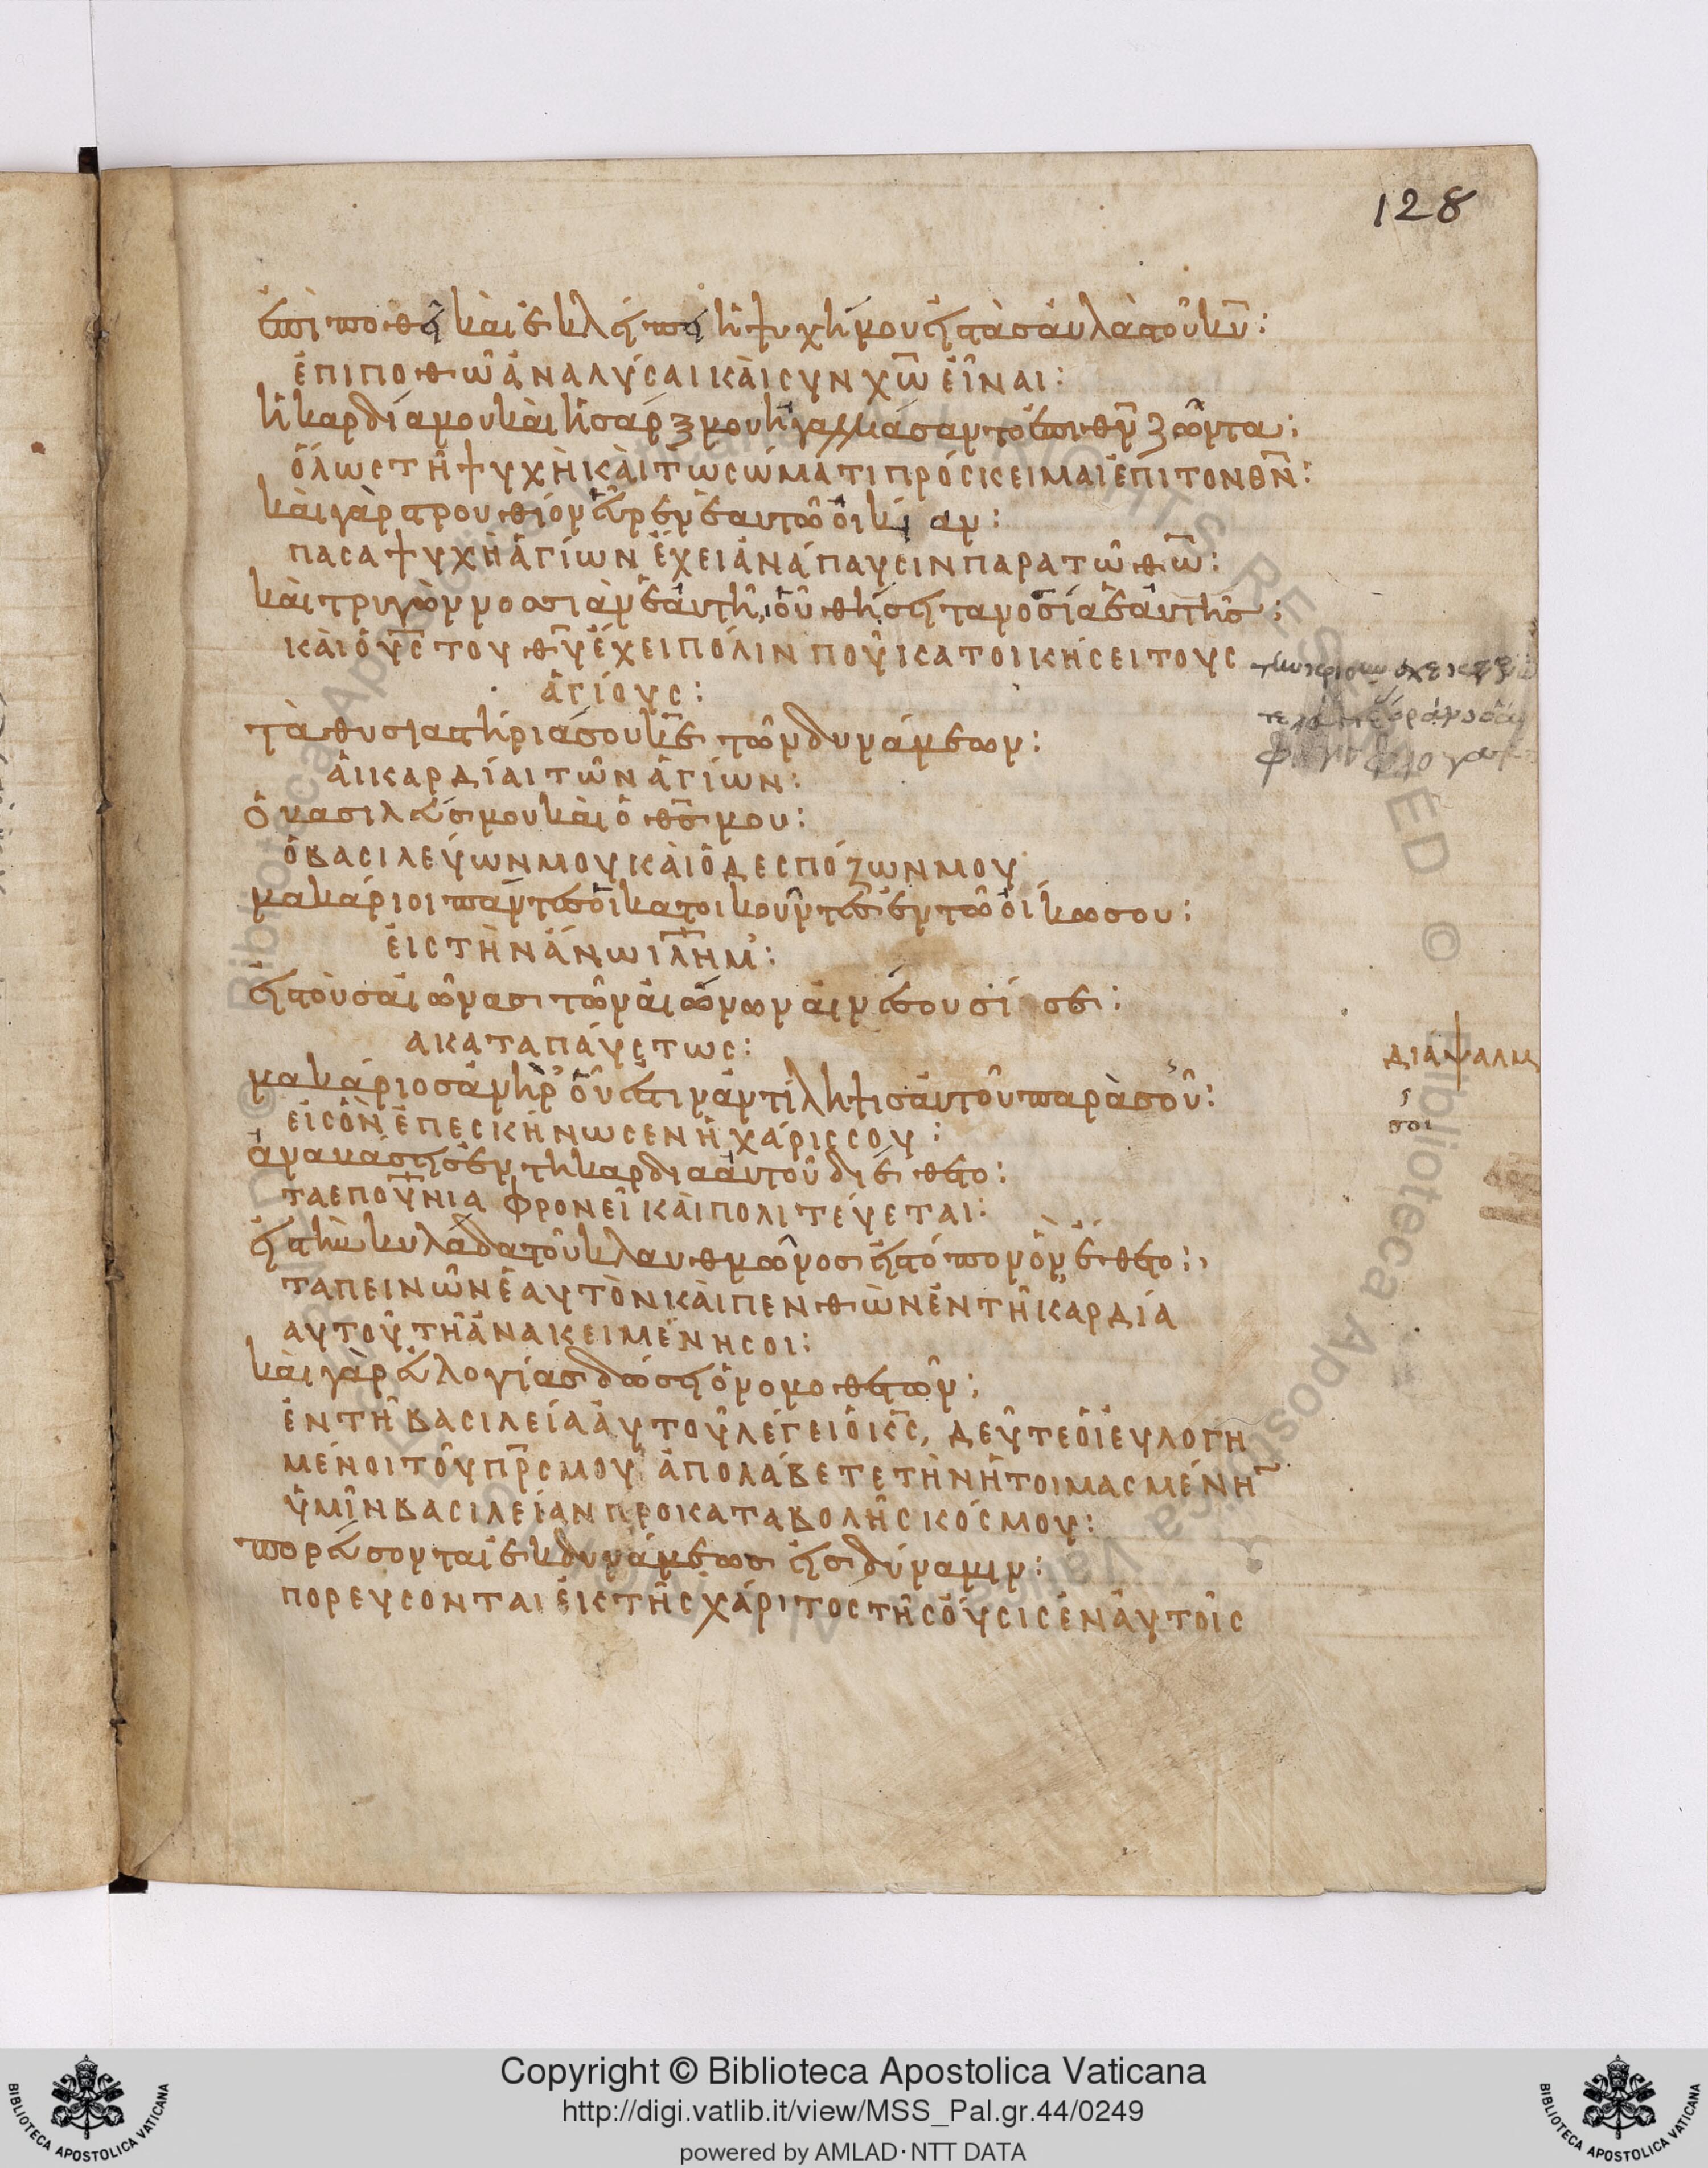 128
ἐπιποθεῖ καὶ ἐκλείπει ἡ ψυχή μου εἰς τὰς αὐλὰς τοῦ κ̅υ̅:
ἐπιποθῶ ἀναλύσαι καὶ σὺν χ̅ω̅ εἶναι:
ἡ καρδία μου καὶ ἡ σάρξ μου ἠγαλλιάσαντο ἐπὶ θ̅ν̅ ζῶντα:
ὅλως τῇ ψυχὴ καὶ τῶ σώματι πρόσκειμαι ἐπὶ τον θ̅ν̅:
καὶ γὰρ στρουθίον εὗρεν ἑαυτῶ οἰκίαν:
πασα ψυχὴ ἁγίων ἔχει ἀνάπαυσιν παρα τῶ θ̅ω̅:
καὶ τρυγὼν νοσσιὰν ἑαυτῆ, οὗ θήσει τα νοσία ἑαυτῆς:
καὶ ὁ υ̅ς̅ του θ̅υ̅ ἔχει πόλιν ποῦ κατοικήσει τους
ἁγίους:
τὰ θυσιαστήριά σου κ̅ε̅ τῶν δυνάμεων:
ἁι καρδίαι τῶν ἁγίων:
ὁ βασιλεύς μου καὶ ὁ θ̅ς̅ μου:
ὁ βασιλεύων μου καὶ ὁ δεσπόζων μου
μακάριοι πάντες οἱ κατοικοῦντες ἐν τῶ οἴκω σου:
εἰς τὴν ἄνω ι̅λ̅η̅μ̅:
εἰς τοὺς αἰῶνας τῶν αἰώνων αἰνέσουσί σε:
ακαταπάυστως:
διαψαλμ
μακάριος ἀνὴρ οὗ ἐστιν ἀντίληψις αὐτοῦ παρὰ σοῦ:
σοι
εἰς ὃν ἐπεσκήνωσεν ἡ χάρις σου:
ἀναβάσεις ἐν τη καρδια αὐτοῦ διέθετο:
τα επο̅υ̅νια φρονεῖ καὶ πολιτέυεται:
εἰς τὴν κυλάδα τοῦ κλαυθμῶνος εἰς τόπον ὃν ἔθετο:
ταπεινῶν ἑαυτὸν καὶ πενθὼν ἐν τῆ καρδία
αυτοῦ τῆ ἀνακειμένη σοι:
καὶ γὰρ εὐλογίας δώσει ὁ νομοθετῶν:
ἐν τῆ βασιλεία ἀυτοῦ λέγει ὁ κ̅ς̅, δεῦτε ὁι ἐυλογη
μένοι τοῦ π̅ρ̅ς̅ μου ἀπολάβετε τὴν ἡτοιμασμένη̅
ὑμῖν βασιλείαν προ καταβολῆς κόσμου:
πορεύσονται ἐκ δυνάμεως εἰς δύναμιν:
πορευσονται ἐκ τῆς χάριτος τῆς ὀύσις ἐν ἀυτοῖς
Copyright © Biblioteca Apostolica Vaticana
http://digi.vatlib.it/view/MSS_Pal.gr.44/0249
powered by AMLAD·NTT DATA